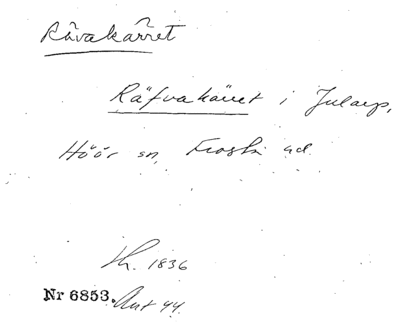 Rävakärret
Räfvakärret i Jularp,
Höör sn, Frosta hd
Lh. 1836
Nr 6853. Ant 44.